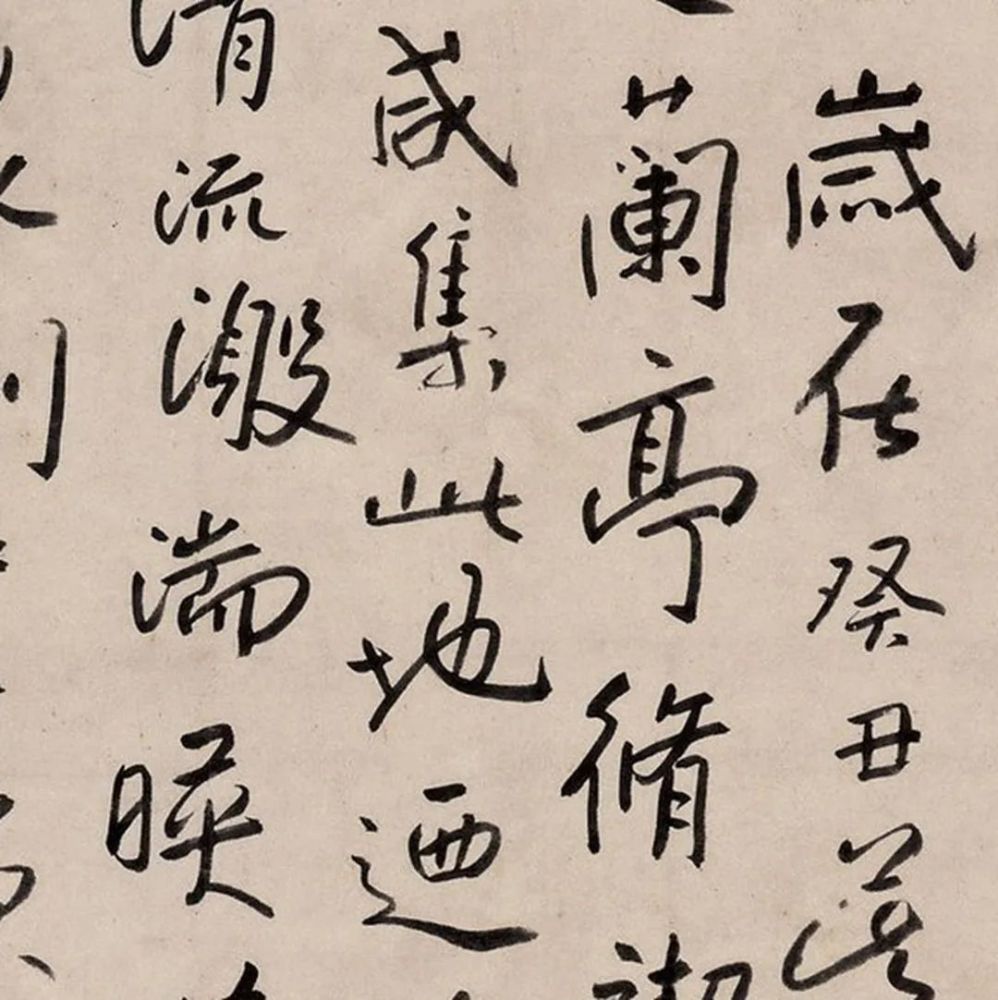 歲在癸丑暮
蘭亭脩禊
咸集此地迺
清流激湍暎